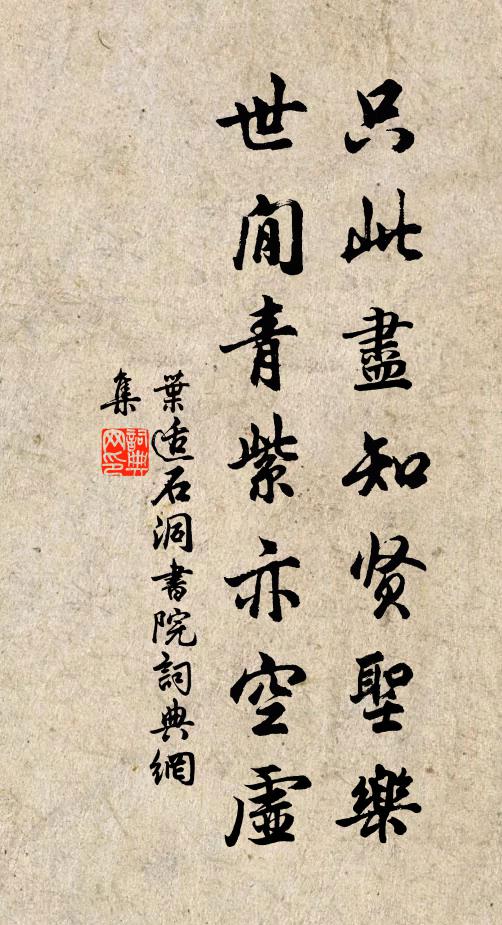 只此盡知贤聖樂
世間青紫亦空虛
葉适石洞書院詞典網
集
詞典網印